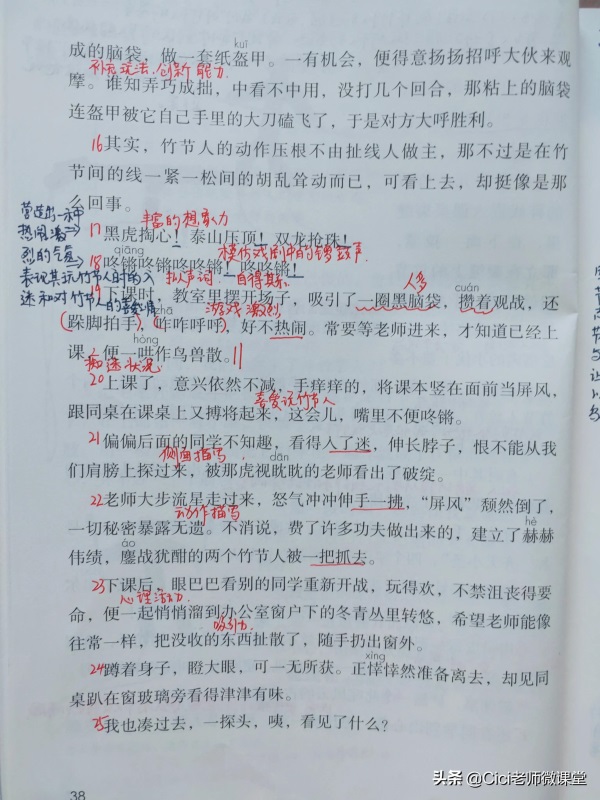 kuī
成的脑袋，做一套纸盔甲。一有机会，便得意扬扬招呼大伙来观
补充玩法，创新能力
摩。谁知弄巧成拙，中看不中用，没打几个回合，那粘上的脑袋
连盔甲被它自己手里的大刀磕飞了，于是对方大呼胜利。
16其实，竹节人的动作压根不由扯线人做主，那不过是在竹
节间的线一紧一松间的胡乱耸动而已，可看上去，却挺像是那
么回事。
营造出一种
热闹激
烈的气氛
表现其玩竹节人时的入
迷和对竹节人的喜爱之情
丰富的想象力
17黑虎掏心！泰山压顶！双龙抢珠！
qiāng
模仿戏剧中的锣鼓声
18咚锵咚锵咚咚锵！咚咚锵！
拟声词 自得其乐
人多
cuán
19下课时，教室里摆开场子，吸引了一圈黑脑袋，攒着观战，还
zhā
游戏激烈
跺脚拍手，咋咋呼呼，好不热闹。常要等老师进来，才知道已经上
hòng
课，便一哄作鸟兽散。
痴迷状况
20上课了，意兴依然不减，手痒痒的，将课本竖在面前当屏风，
喜爱玩竹节人
跟同桌在课桌上又搏将起来，这会儿，嘴里不便咚锵。
21偏偏后面的同学不知趣，看得入了迷，伸长脖子，恨不能从我
侧面描写
dān
们肩膀上探过来，被那虎视眈眈的老师看出了破绽。
22老师大步流星走过来，怒气冲冲伸手一拂，“屏风”颓然倒了，
动作描写
hè
一切秘密暴露无遗。不消说，费了许多功夫做出来的，建立了赫赫
áo
伟绩，鏖战犹酣的两个竹节人被一把抓去。
23下课后，眼巴巴看别的同学重新开战，玩得欢，不禁沮丧得要
心理活动
命，便一起悄悄溜到办公室窗户下的冬青丛里转悠，希望老师能像
吸引力
往常一样，把没收的东西扯散了，随手扔出窗外。
xìng
24蹲着身子，瞪大眼，可一无所获。正悻悻然准备离去，却见同
桌趴在窗玻璃旁看得津津有味。
25我也凑过去，一探头，咦，看见了什么？
38
头条 @Cici老师微课堂